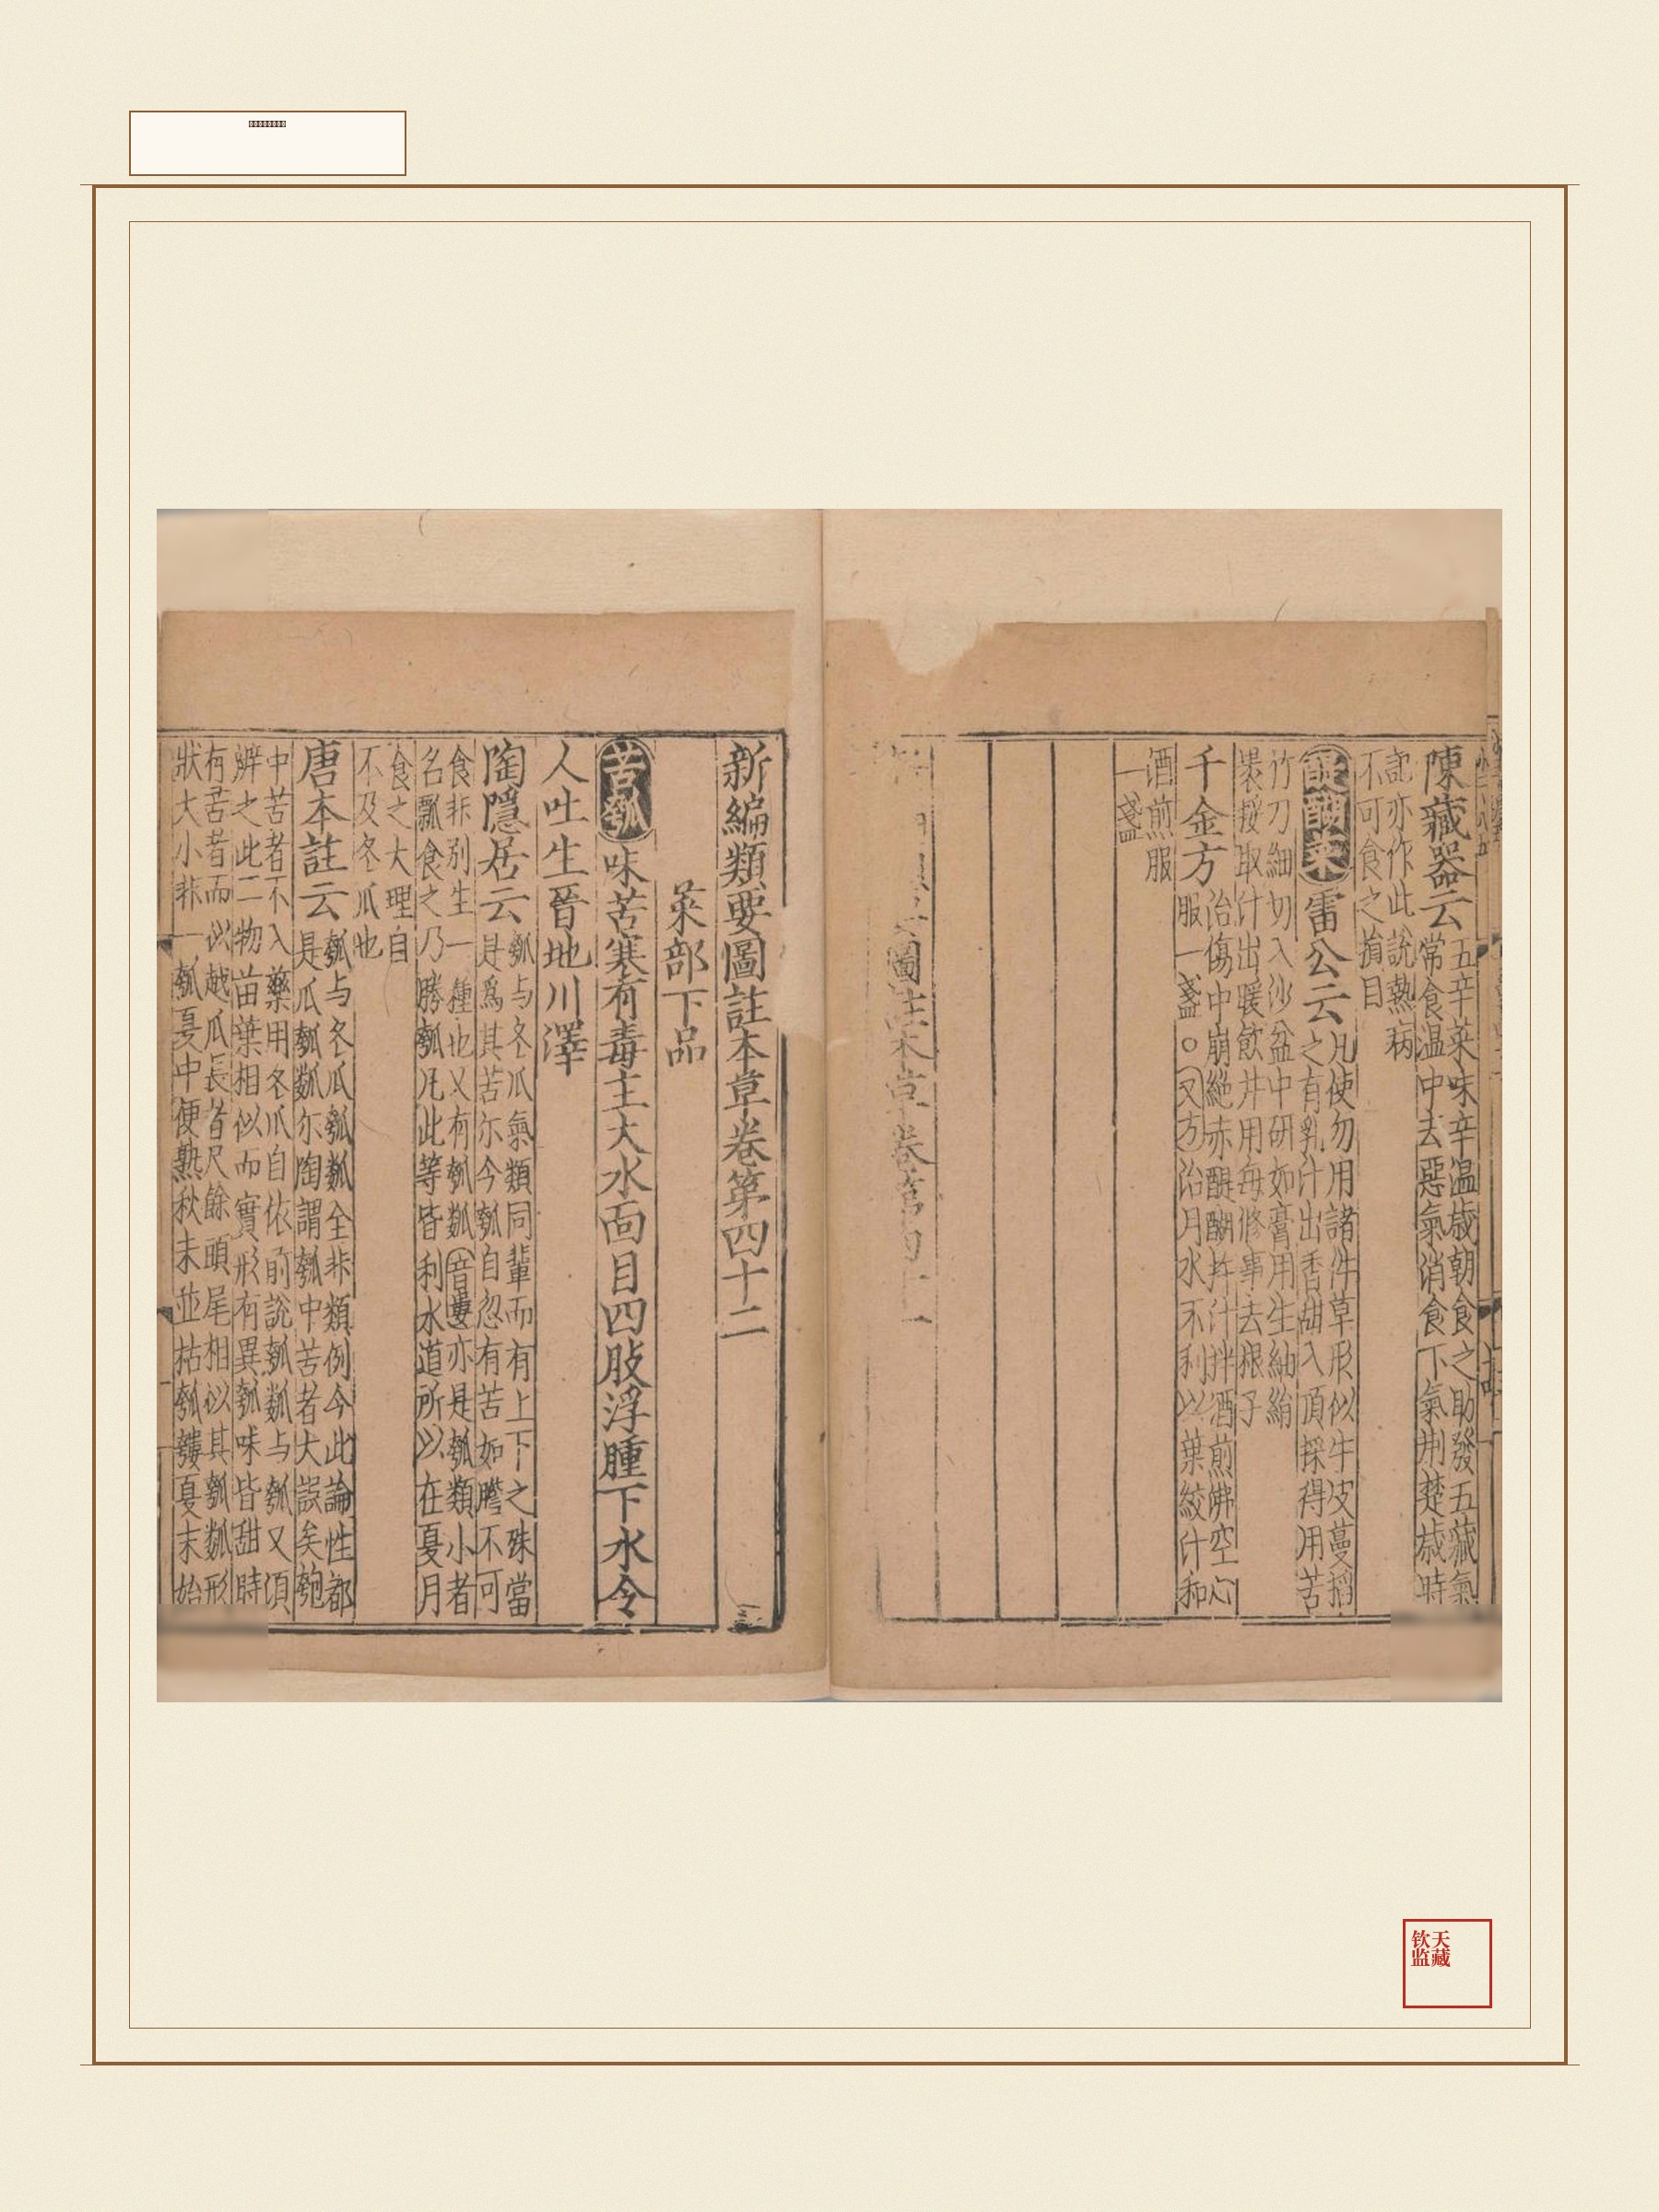 陳藏器云
五辛菜味辛温歳朝食之助發五藏氣
常食温中去惡氣消食下氣荆楚歳時
記亦作此說熱病
不可食之損目
醍醐菜
雷公云
凡使勿用諸件草形似牛皮蔓搯
之有乳汁出香甜入頂採得用苦
竹刀細切入沙盆中研如膏用生紬絹
裛挼取汁出暖飲
千金方
治傷中崩絕赤醍醐杵汁拌酒煎沸空心
服一盞○又方治月水不利以葉絞汁和
酒煎服
一盞
圖註本草卷第四十一
新編類要圖註本草卷第四十二
菜部下品
苦瓠
味苦寒有毒主大水面目四肢浮腫下水令
人吐生晉地川澤
陶隱居云
瓠与冬瓜氣類同輩而有上下之殊當
是爲其苦尓今瓠自忽有苦如膽不可
食非別生一種也又有瓠㼐音婁亦是瓠類小者
名瓢食之乃勝瓠凡此等皆利水道所以在夏月
食之大理自
不及冬瓜也
唐本註云
瓠与冬瓜瓠㼐全非類例今此論性都
是瓜瓠㼐尓陶謂瓠中苦者大誤矣瓠
中苦者不入藥用冬瓜自依前說瓠㼐与瓠又須
辨之此二物苗葉相似而實形有異瓠味皆甜時
有苦者而以越瓜長者尺餘頭尾相似其瓠㼐形
狀大小非一瓠夏中便熟秋末並枯瓠㼐夏末始
钦天
监藏